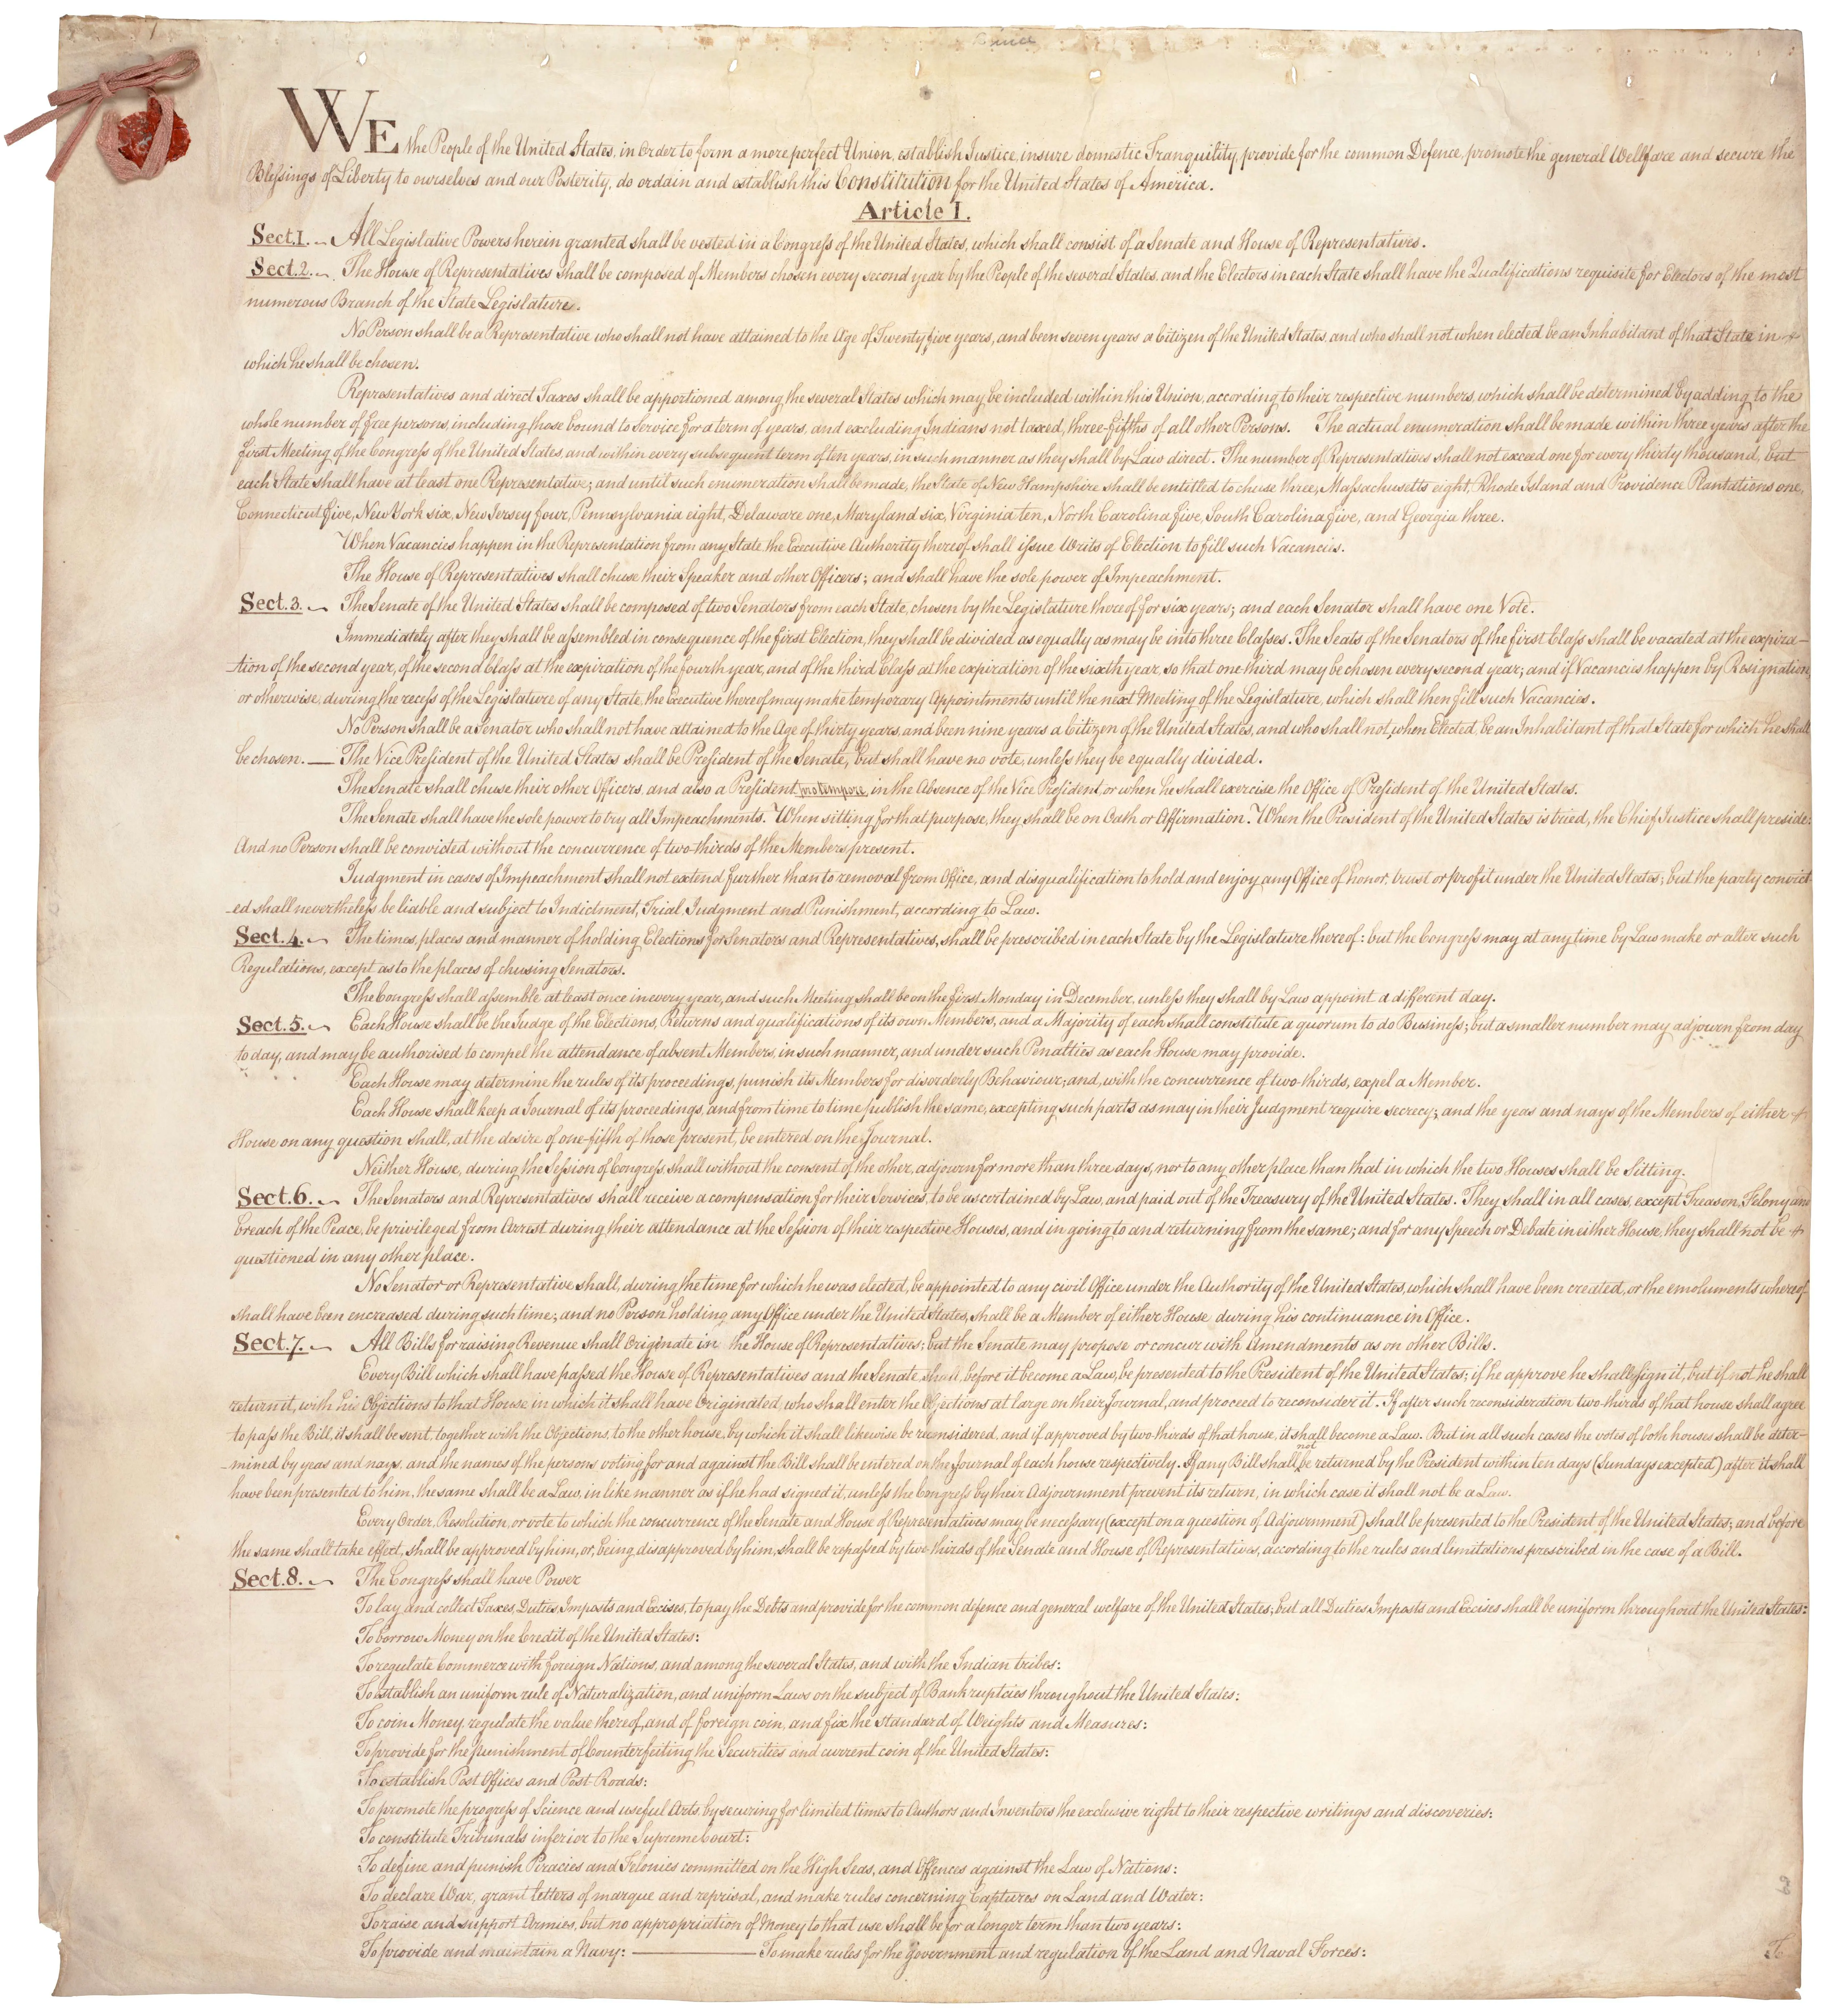 WE the People of the United States, in Order to form a more perfect Union, establish Justice, insure domestic Tranquility, provide for the common Defence, promote the general Wellfare and secure the
Blessings of Liberty to ourselves and our Posterity, do ordain and establish this Constitution for the United States of America.
Article I.
Sect.1. All Legislative Powers herein granted shall be vested in a Congress of the United States, which shall consist of a Senate and House of Representatives.
Sect.2. The House of Representatives shall be composed of Members chosen every second year by the People of the several States, and the Electors in each State shall have the Qualifications requisite for Electors of the most
numerous Branch of the State Legislature.
No Person shall be a Representative who shall not have attained to the Age of Twenty five years, and been seven years a Citizen of the United States, and who shall not when elected be an Inhabitant of that State in
which he shall be chosen.
Representatives and direct Taxes shall be apportioned among the several States which may be included within this Union, according to their respective numbers, which shall be determined by adding to the
whole number of free persons, including those bound to Service for a term of years, and excluding Indians not taxed, three-fifths of all other Persons. The actual enumeration shall be made within three years after the
first Meeting of the Congress of the United States, and within every subsequent term of ten years, in such manner as they shall by Law direct. The number of Representatives shall not exceed one for every thirty thousand, but
each State shall have at least one Representative; and until such enumeration shall be made, the State of New Hampshire shall be entitled to chuse three, Massachusetts eight, Rhode Island and Providence Plantations one,
Connecticut five, New York six, New Jersey four, Pennsylvania eight, Delaware one, Maryland six, Virginia ten, North Carolina five, South Carolina five, and Georgia three.
When Vacancies happen in the Representation from any State, the Executive Authority thereof shall issue Writs of Election to fill such Vacancies.
The House of Representatives shall chuse their Speaker and other Officers; and shall have the sole power of Impeachment.
Sect.3. The Senate of the United States shall be composed of two Senators from each State, chosen by the Legislature thereof for six years; and each Senator shall have one Vote.
Immediately after they shall be assembled in consequence of the first Election, they shall be divided as equally as may be into three Classes. The Seats of the Senators of the first Class shall be vacated at the expira–
–tion of the second year, of the second Class at the expiration of the fourth year, and of the third Class at the expiration of the sixth year, so that one-third may be chosen every second year; and if Vacancies happen by Resignation,
or otherwise, during the recess of the Legislature of any State, the Executive thereof may make temporary Appointments until the next Meeting of the Legislature, which shall then fill such Vacancies.
No Person shall be a Senator who shall not have attained to the Age of thirty years, and been nine years a Citizen of the United States, and who shall not, when Elected, be an Inhabitant of that State for which he shall
be chosen. — The Vice President of the United States shall be President of the Senate, but shall have no vote, unless they be equally divided.
The Senate shall chuse their other Officers, and also a President pro tempore, in the Absence of the Vice President, or when he shall exercise the Office of President of the United States.
The Senate shall have the sole power to try all Impeachments. When sitting for that purpose, they shall be on Oath or Affirmation. When the President of the United States is tried, the Chief Justice shall preside:
And no Person shall be convicted without the concurrence of two-thirds of the Members present.
Judgment in cases of Impeachment shall not extend further than to removal from Office, and disqualification to hold and enjoy any Office of honor, trust or profit under the United States; but the party convict
–ed shall nevertheless be liable and subject to Indictment, Trial, Judgment and Punishment, according to Law.
Sect.4. The times, places and manner of holding Elections for Senators and Representatives, shall be prescribed in each State by the Legislature thereof: but the Congress may at any time by Law make or alter such
Regulations, except as to the places of chusing Senators.
The Congress shall assemble at least once in every year, and such Meeting shall be on the first Monday in December, unless they shall by Law appoint a different day.
Sect.5. Each House shall be the Judge of the Elections, Returns and qualifications of its own Members, and a Majority of each shall constitute a quorum to do Business; but a smaller number may adjourn from day
to day, and may be authorised to compel the attendance of absent Members, in such manner, and under such Penalties as each House may provide.
Each House may determine the rules of its proceedings, punish its Members for disorderly Behaviour; and, with the concurrence of two-thirds, expel a Member.
Each House shall keep a Journal of its proceedings, and from time to time publish the same, excepting such parts as may in their Judgment require secrecy; and the yeas and nays of the Members of either
House on any question shall, at the desire of one-fifth of those present, be entered on the Journal.
Neither House, during the Session of Congress, shall without the consent of the other, adjourn for more than three days, nor to any other place than that in which the two Houses shall be Sitting.
Sect.6. The Senators and Representatives shall receive a compensation for their Services, to be ascertained by Law, and paid out of the Treasury of the United States. They shall in all cases, except Treason, Felony and
breach of the Peace, be privileged from Arrest during their attendance at the Session of their respective Houses, and in going to and returning from the same; and for any Speech or Debate in either House, they shall not be
questioned in any other place.
No Senator or Representative shall, during the time for which he was elected, be appointed to any civil Office under the Authority of the United States, which shall have been created, or the emoluments whereof
shall have been encreased during such time; and no Person holding any Office under the United States, shall be a Member of either House during his continuance in Office.
Sect.7. All Bills for raising Revenue shall Originate in the House of Representatives; but the Senate may propose or concur with Amendments as on other Bills.
Every Bill which shall have passed the House of Representatives and the Senate, shall, before it become a Law, be presented to the President of the United States; if he approve he shall sign it, but if not he shall
return it, with his Objections to that House in which it shall have Originated, who shall enter the Objections at large on their Journal, and proceed to reconsider it. If after such reconsideration two-thirds of that house shall agree
to pass the Bill, it shall be sent, together with the Objections, to the other house, by which it shall likewise be reconsidered, and if approved by two thirds of that house, it shall become a Law. But in all such cases the votes of both houses shall be deter–
–mined by yeas and nays, and the names of the persons voting for and against the Bill shall be entered on the Journal of each house respectively. If any Bill shall not be returned by the President within ten days (Sundays excepted) after it shall
have been presented to him, the same shall be a Law, in like manner as if he had signed it, unless the Congress by their Adjournment prevent its return, in which case it shall not be a Law.
Every Order, Resolution, or vote to which the concurrence of the Senate and House of Representatives may be necessary (except on a question of Adjournment) shall be presented to the President of the United States; and before
the same shall take effect, shall be approved by him, or, being disapproved by him, shall be repassed by two-thirds of the Senate and House of Representatives, according to the rules and limitations prescribed in the case of a Bill.
Sect.8. The Congress shall have Power
To lay and collect Taxes, Duties, Imposts and Excises, to pay the Debts and provide for the common defence and general welfare of the United States; but all Duties Imposts and Excises shall be uniform throughout the United States:
To borrow Money on the Credit of the United States:
To regulate Commerce with foreign Nations, and among the several States, and with the Indian tribes:
To establish an uniform rule of Naturalization, and uniform Laws on the subject of Bankruptcies throughout the United States:
To coin Money, regulate the value thereof, and of foreign coin, and fix the standard of Weights and Measures:
To provide for the punishment of Counterfeiting the Securities and current coin of the United States:
To establish Post Offices and Post Roads:
To promote the progress of Science and useful Arts, by securing for limited times to Authors and Inventors the exclusive right to their respective writings and discoveries:
To constitute Tribunals inferior to the Supreme Court:
To define and punish Piracies and Felonies committed on the High Seas, and Offences against the Law of Nations:
To declare War, grant letters of marque and reprisal, and make rules concerning Captures on Land and Water:
To raise and support Armies, but no appropriation of Money to that use shall be for a longer term than two years:
To provide and maintain a Navy: — To make rules for the Government and regulation of the Land and Naval Forces:
To